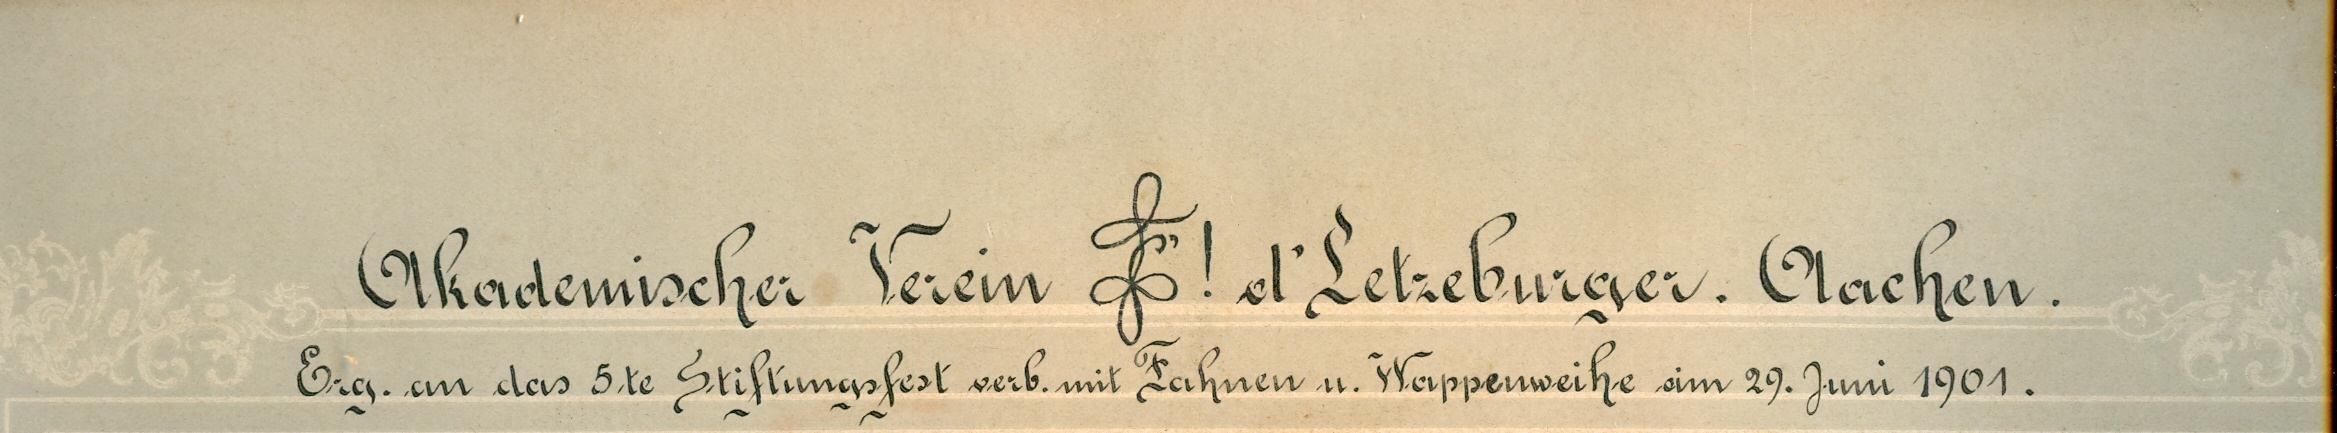 Akademischer Verein ! d'Letzeburger. Aachen.
Erg. an das 5.te Stiftungsfest verb. mit Fahnen u. Wappenweihe am 29. Juni 1901.